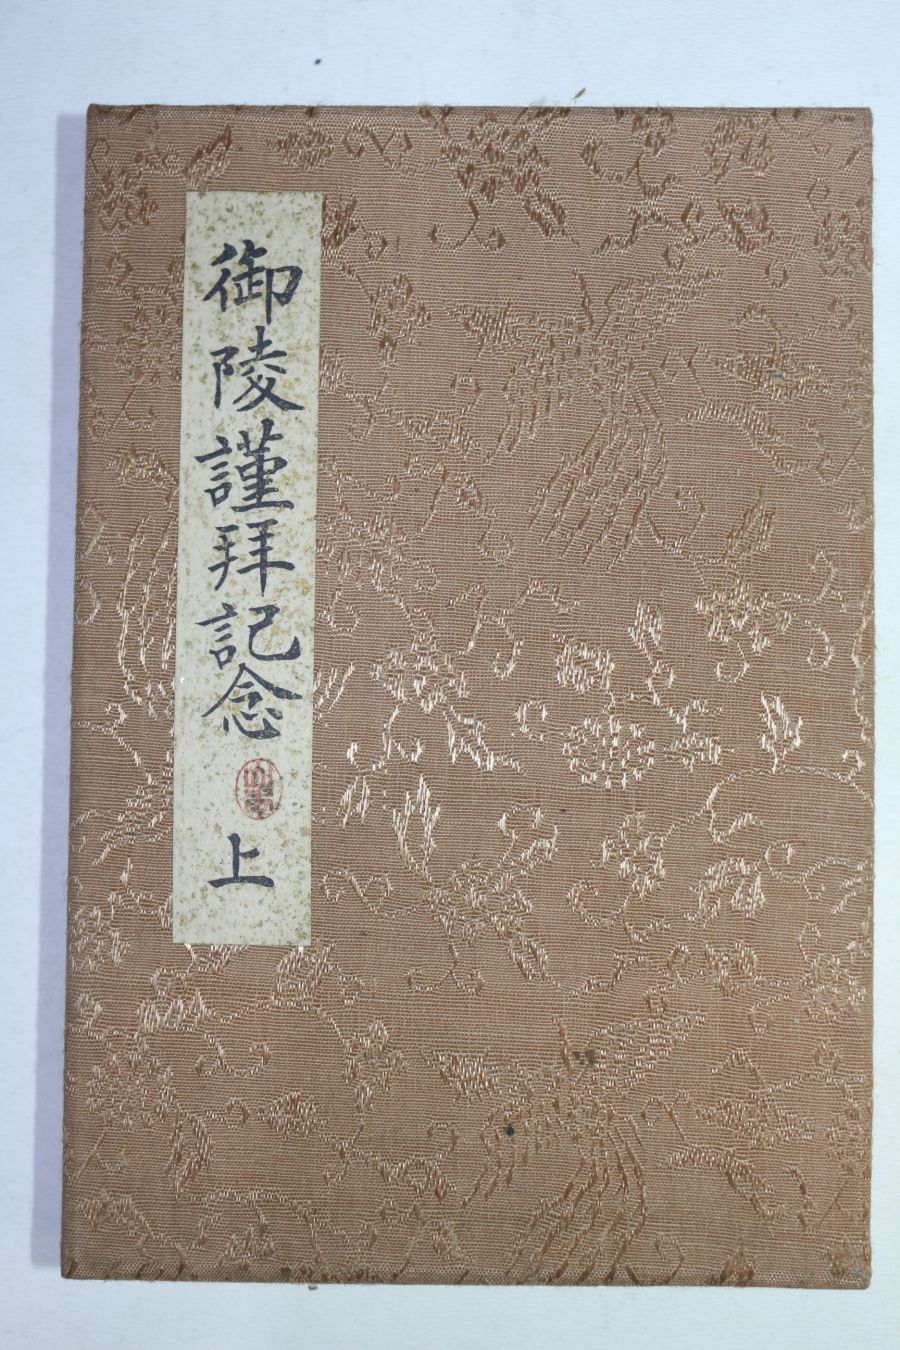 御陵謹拜記念
上